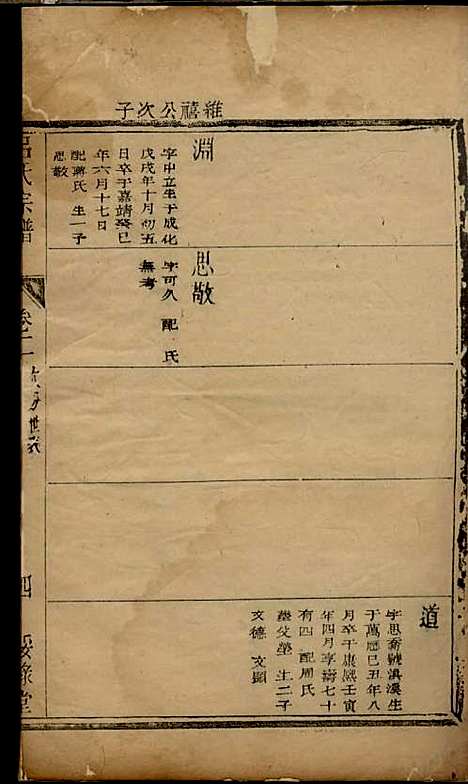 維禧公次子
淵
字中立生于成化
戊戌年十月初五
日卒于嘉靖癸巳
年六月十七日
配蔣氏 生一子
思敬
思敬
字可久 配 氏
無考
道
字思喬號滇溪生
于萬曆巳丑年八
月卒于康熙壬寅
年四月享壽七十
有四 配周氏
塟父塋 生二子
文德 文顯
呂氏宗譜
卷二
世
四
綏祿堂